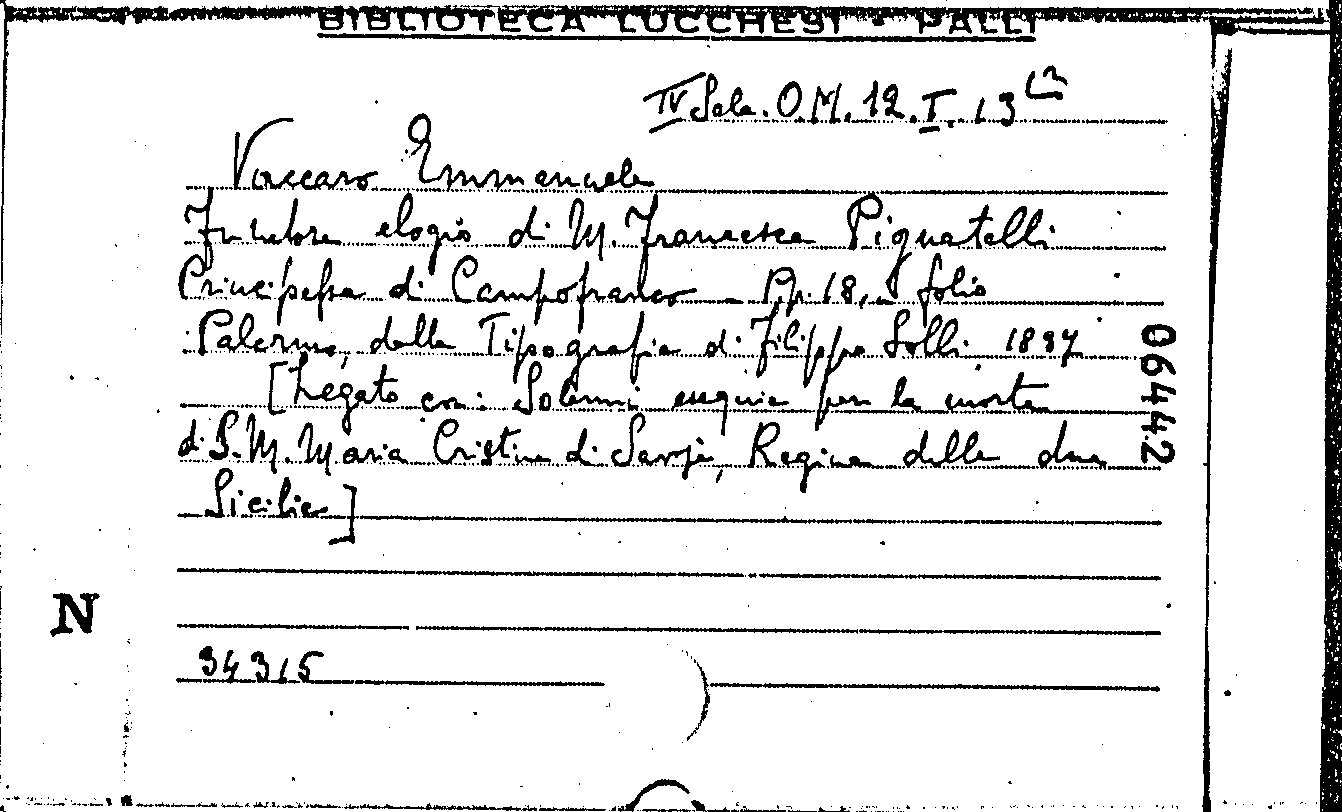 BIBLIOTECA LUCCHESI - PALLI
IV Sala. O.M. 12. I. 13 (12
Vaccaro Emmanuele
Funebre elogio di M. Francesca Pignatelli
Principessa di Campofranco - Pp. 18, in folio
Palermo, dalla Tipografia di Filippo Solli 1837
[Legato con: Solenni esequie per la morte
di S. M. Maria Cristina di Savoja, Regina delle due
Sicilie]
06442
N
34315